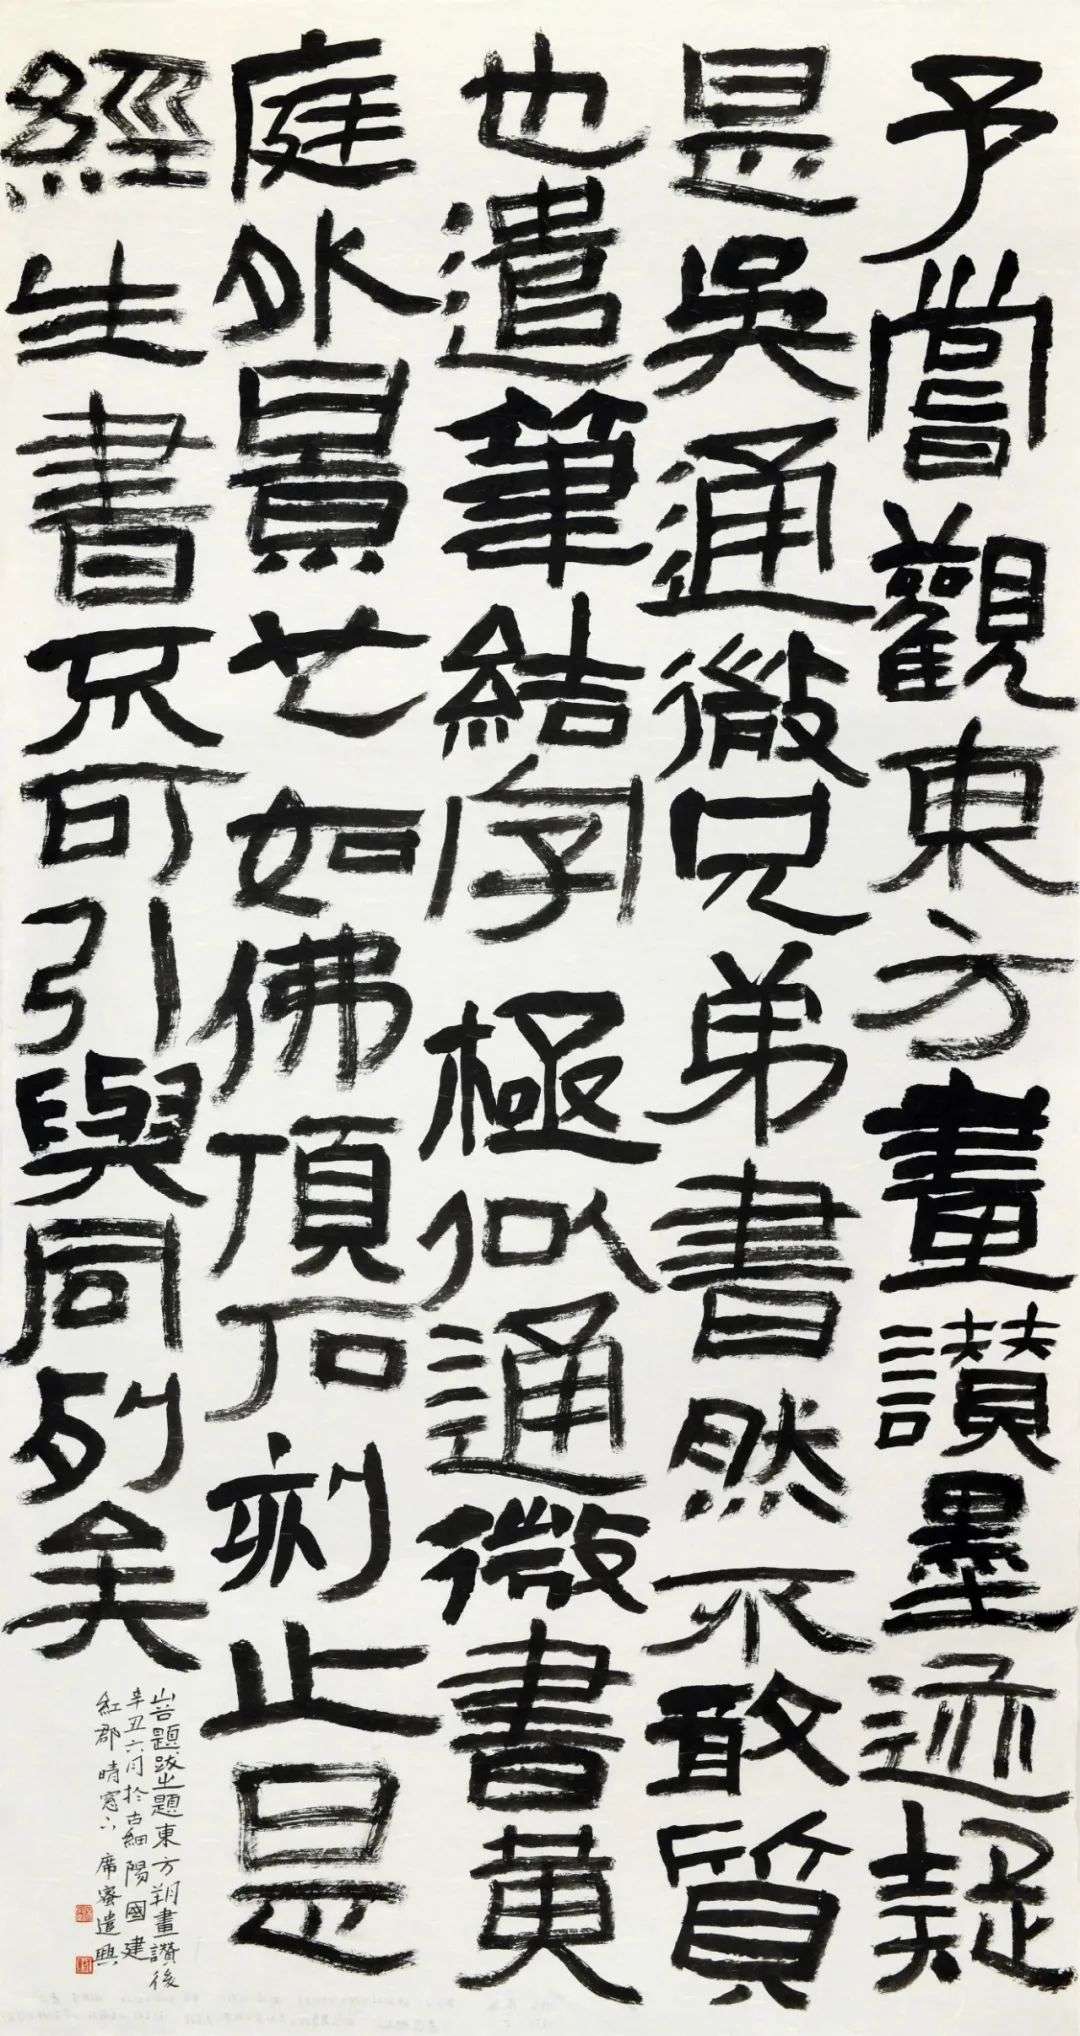 予嘗觀東方畫讃墨迹疑
是吳通微兄弟書然不敢質
也遣筆結字極似通微書黄
庭外景也如佛頂石刻止是
經生書不可引與同列矣
山谷題跋之題東方朔畫讚後
辛丑六月於古細陽國建
紅郡晴窓下 席遣興